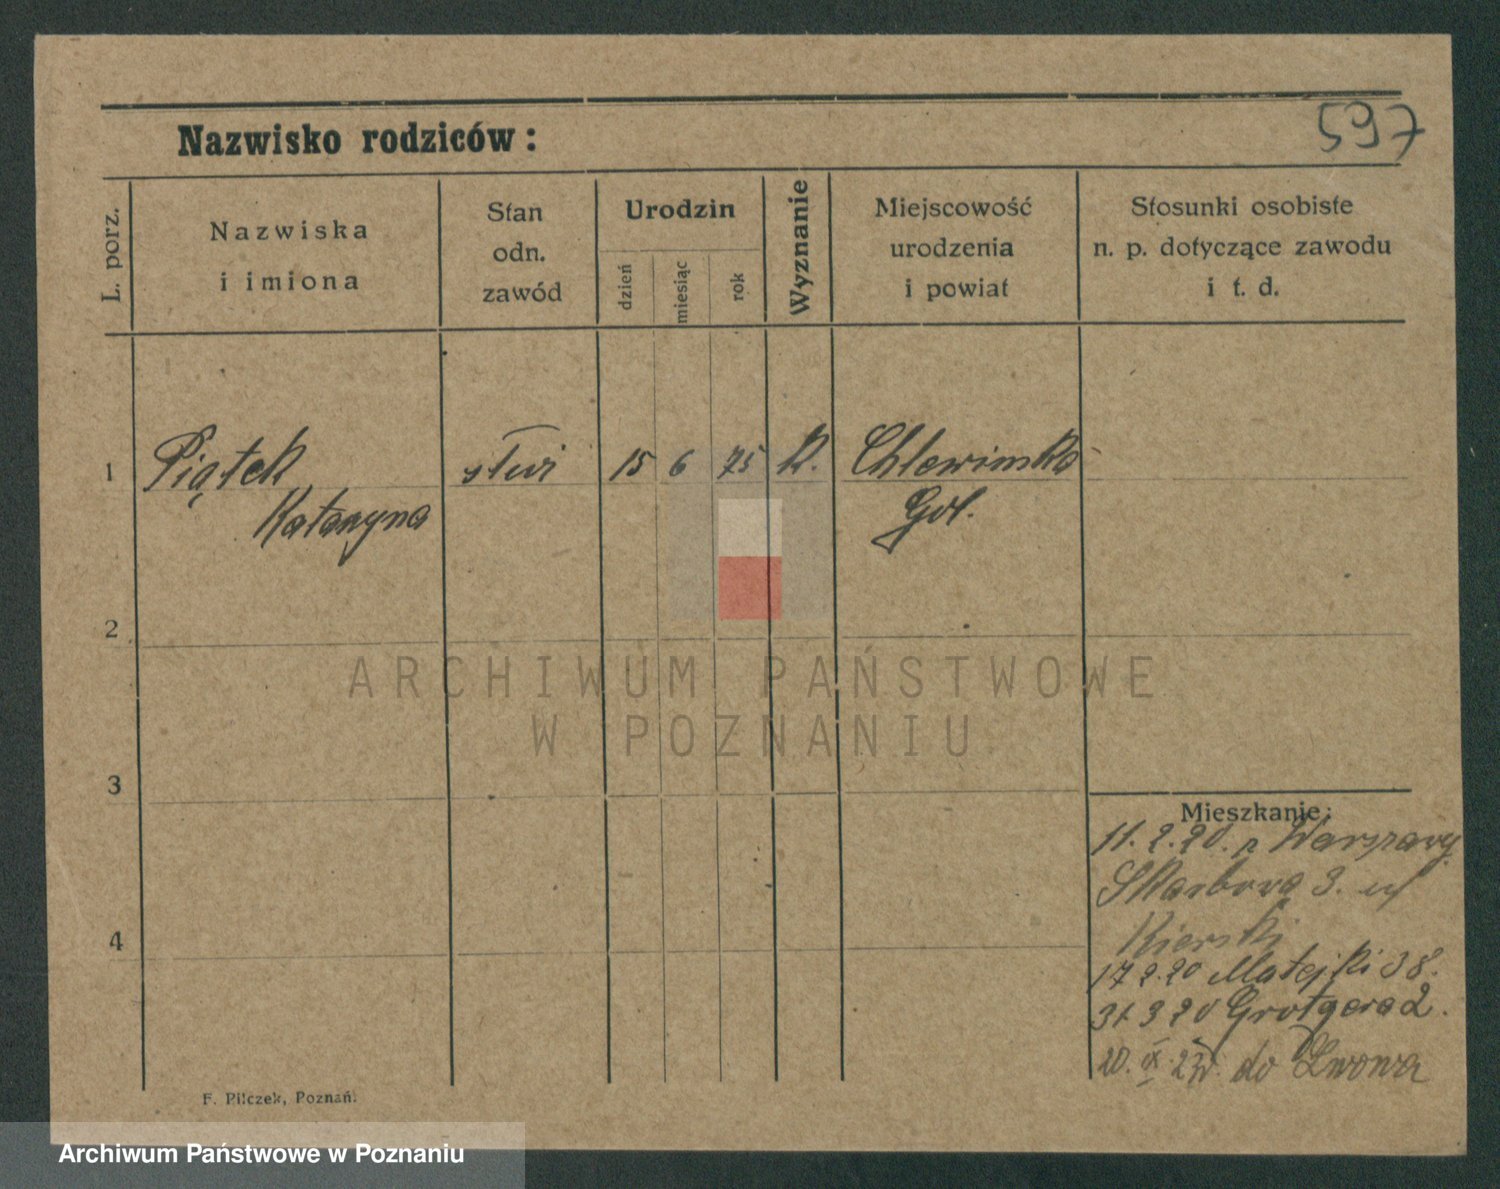 597
Nazwisko rodziców:
L. porz.
Nazwiska
i imiona
Stan
odn.
zawód
Urodzin
dzień
miesiąc
rok
Wyznanie
Miejscowość
urodzenia
i powiat
Stosunki osobiste
n. p. dotyczące zawodu
i t. d.
1
Piątek
Katarzyna
15
6
75
K.
Chlewinska
Gal.
2
ARCHIWUM PAŃSTWOWE
W POZNANIU
3
4
Mieszkanie:
11.2.20. z Warszawy
Skarbowa 3.
Kierski
17 2.20 Matejki 38.
31 3 20 Grotgera 2.
20. IX. do Lwowa
F. Pilczek, Poznań.
Archiwum Państwowe w Poznaniu